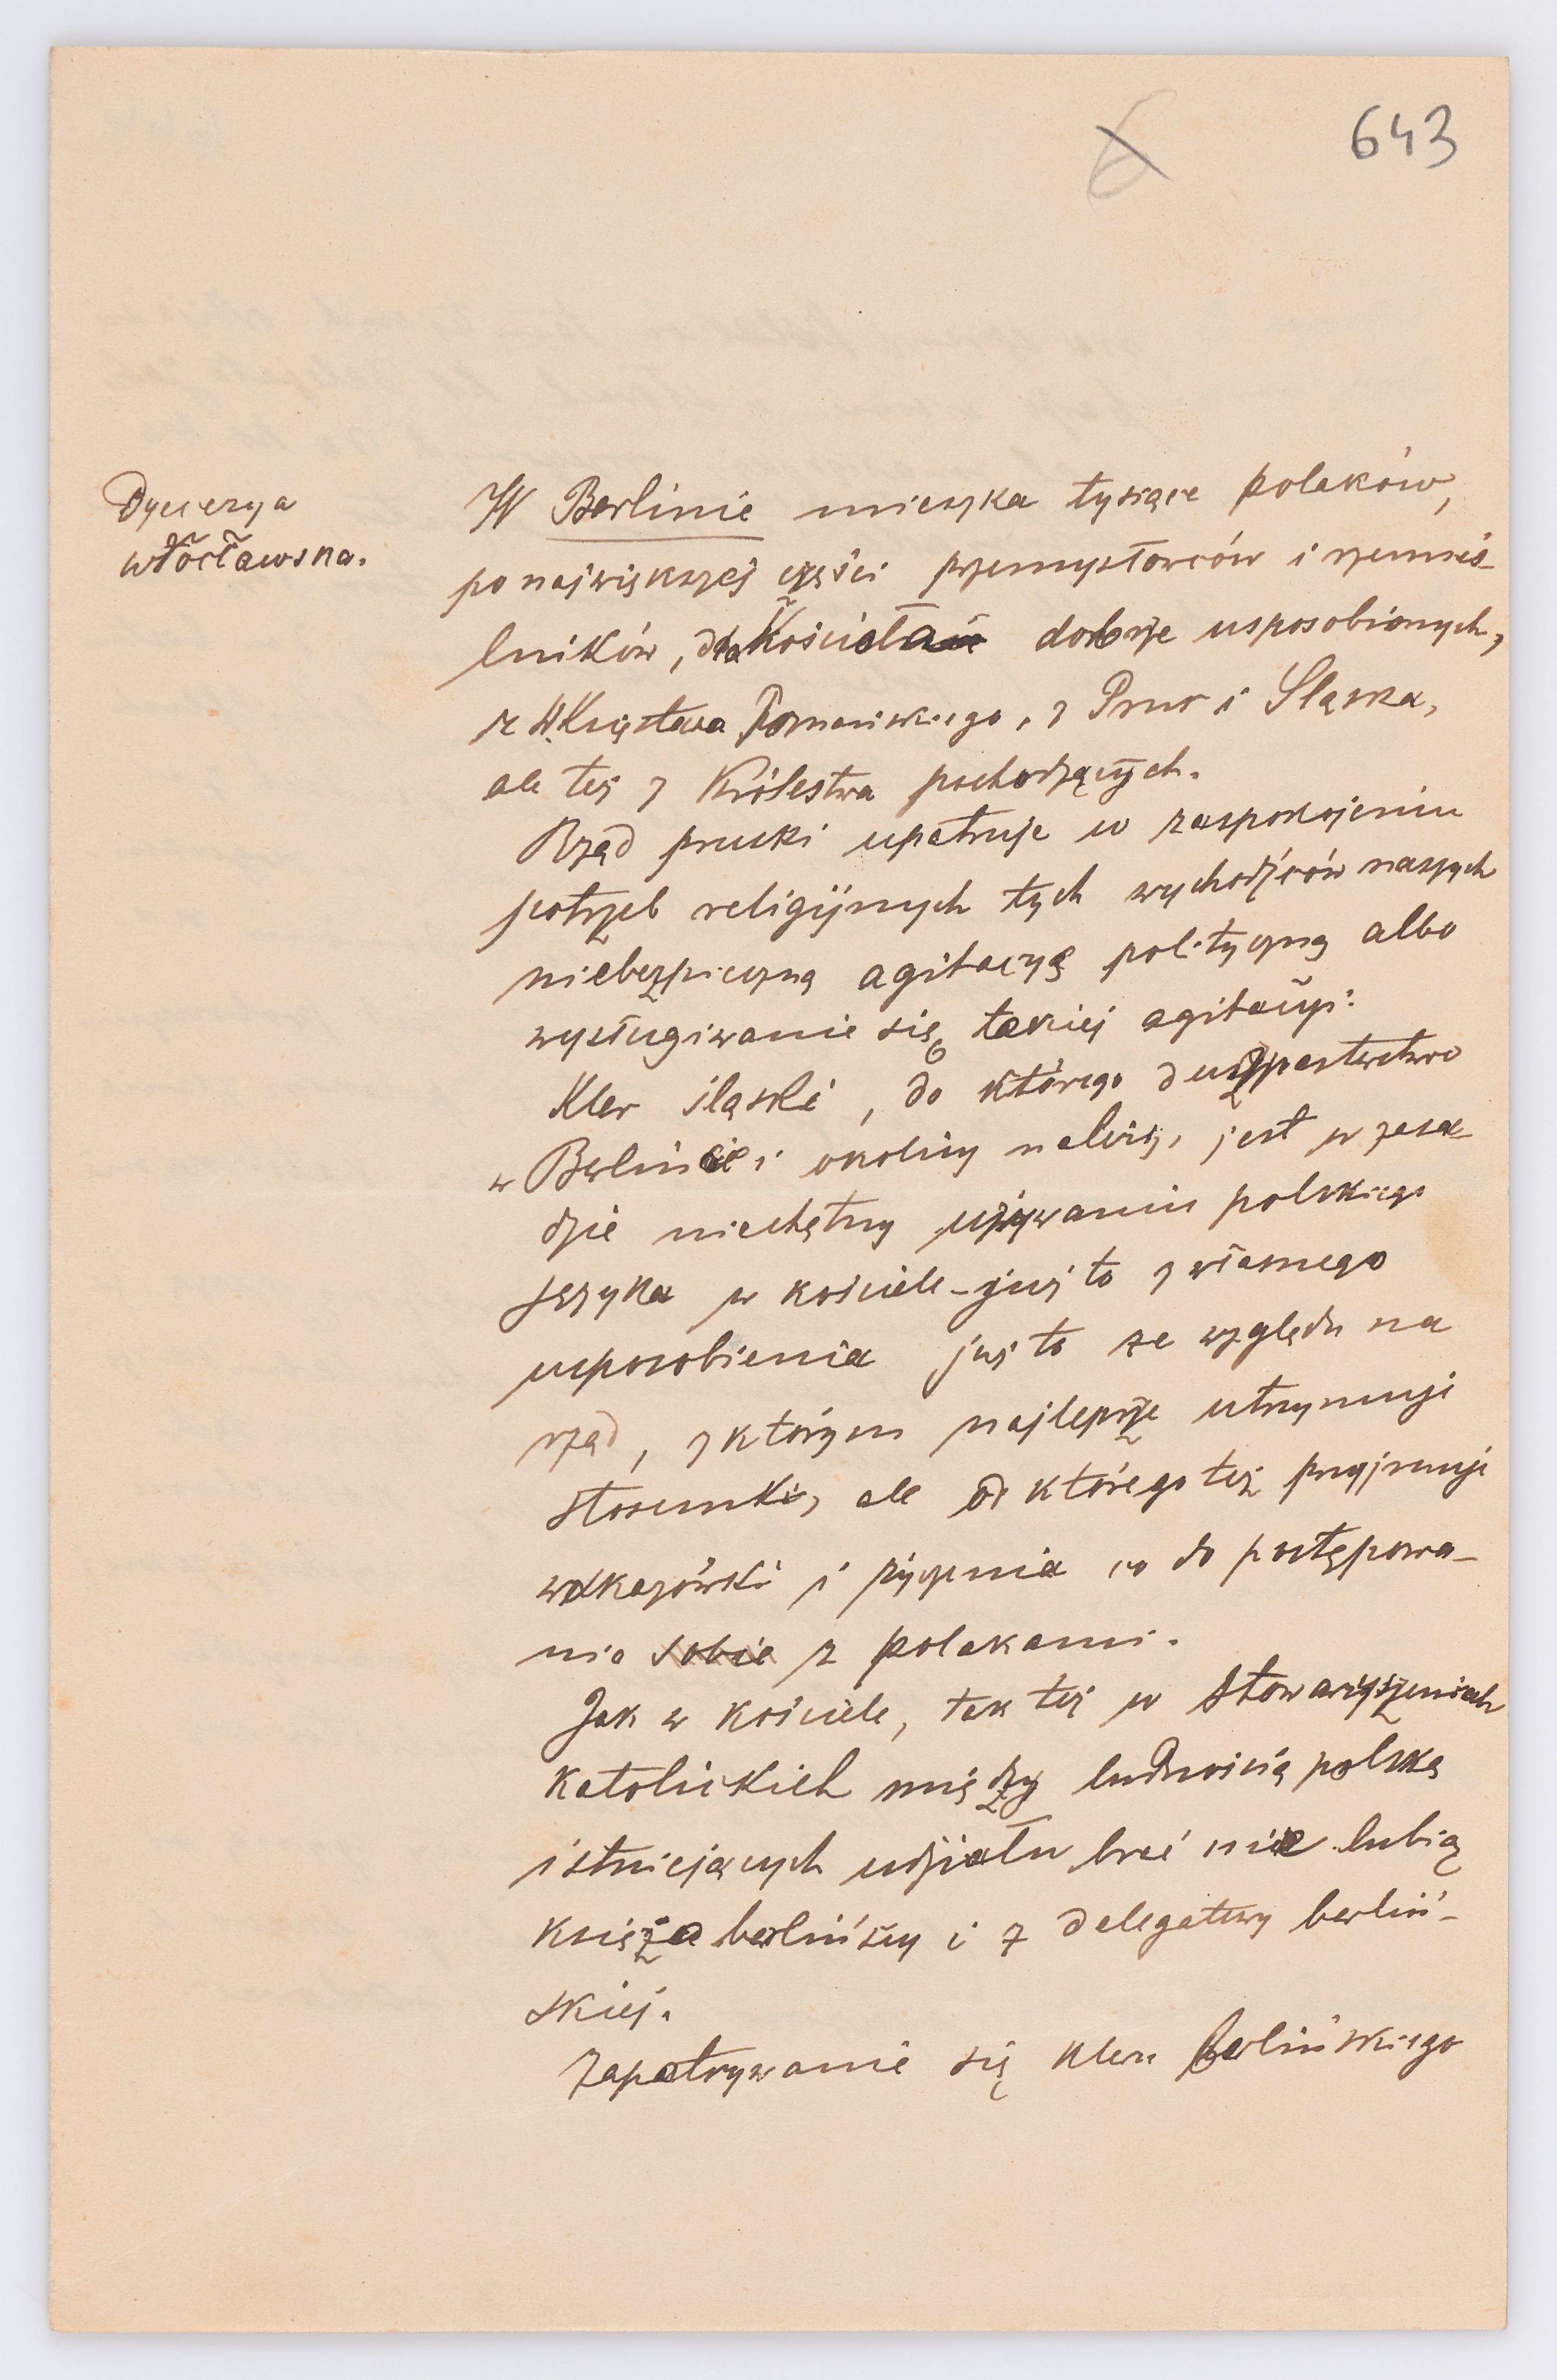 643
Dyecezya
włocławska.
W Berlinie mieszka tysiące polaków,
po największej części przemysłowców i rzemieś-
lników, dla Kościoła dobrze usposobionych,
z W. Księstwa Poznańskiego, z Prus i Śląska,
ale też z Królestwa pochodzących.
Rząd pruski upatruje w zaspokojeniu
potrzeb religijnych tych wychodźców naszych
niebezpieczną agitacyę polityczną albo
wysługiwanie się takiej agitacyi.
Kler śląski, do którego duszpasterstwo
w Berlinie i okolicy należy, jest w zasa-
dzie niechętny używaniu polskiego
języka w kościele - już to z własnego
usposobienia już to ze względu na
rząd, z którym najlepsze utrzymuje
stosunki, ale od którego też przyjmuje
wskazówki i życzenia co do postępowa-
nia sobie z polakami.
Jak w kościele, tak też w stowarzyszeniach
katolickich między ludnością polską
istniejących udziału brać nie lubią
księża berlińscy i z delegatury berliń-
skiej.
Zapatrywanie się kleru berlińskiego